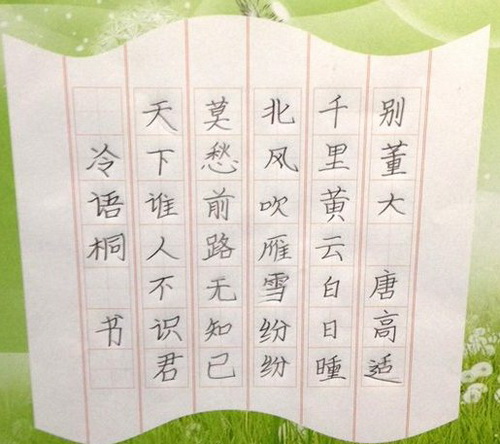 别董大 唐高适
千里黄云白日曛
北风吹雁雪纷纷
莫愁前路无知已
天下谁人不识君
冷语桐 书